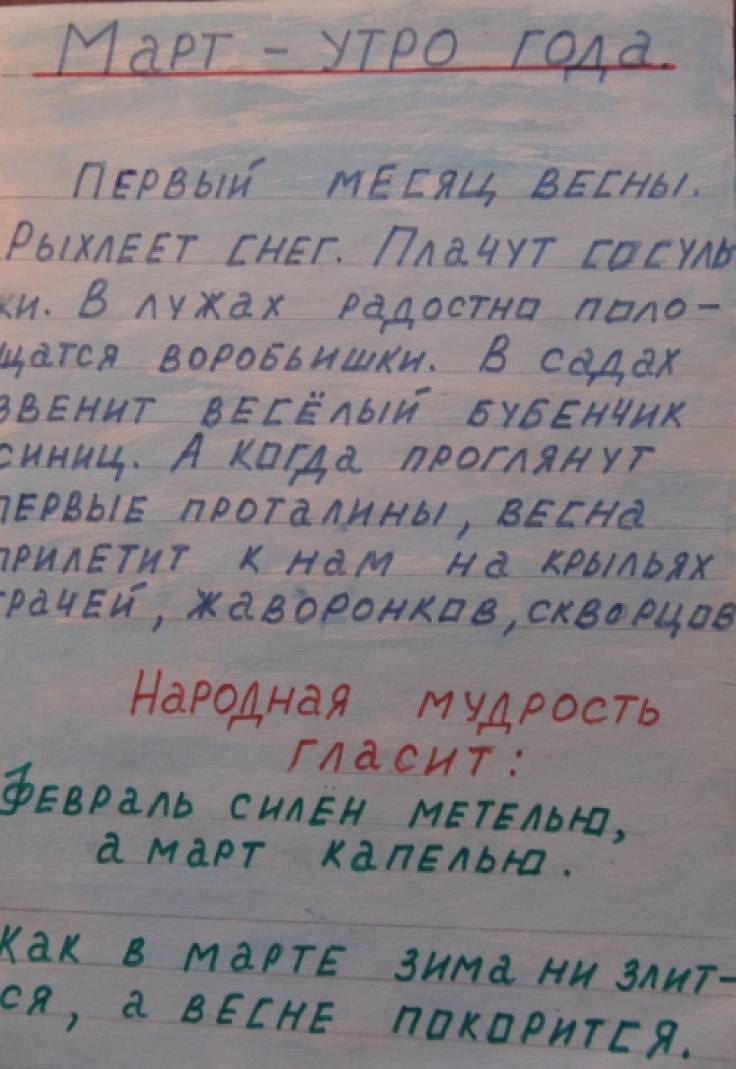 Март - утро года.
Первый месяц весны.
Рыхлеет снег. Плачут сосуль
ки. В лужах радостно поло-
щатся воробьишки. В садах
звенит весёлый бубенчик
синиц. А когда проглянут
первые проталины, весна
прилетит к нам на крыльях
грачей, жаворонков, скворцов
Народная мудрость
гласит:
Февраль силён метелью,
а март капелью.
Как в марте зима ни злит-
ся, а весне покорится.